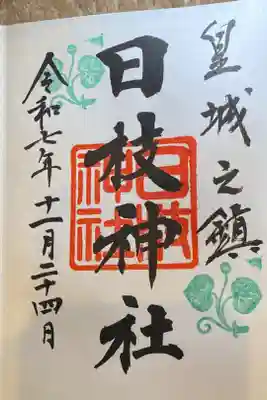 皇城之鎮
日枝神社
日枝神社
令和七年十一月二十四日